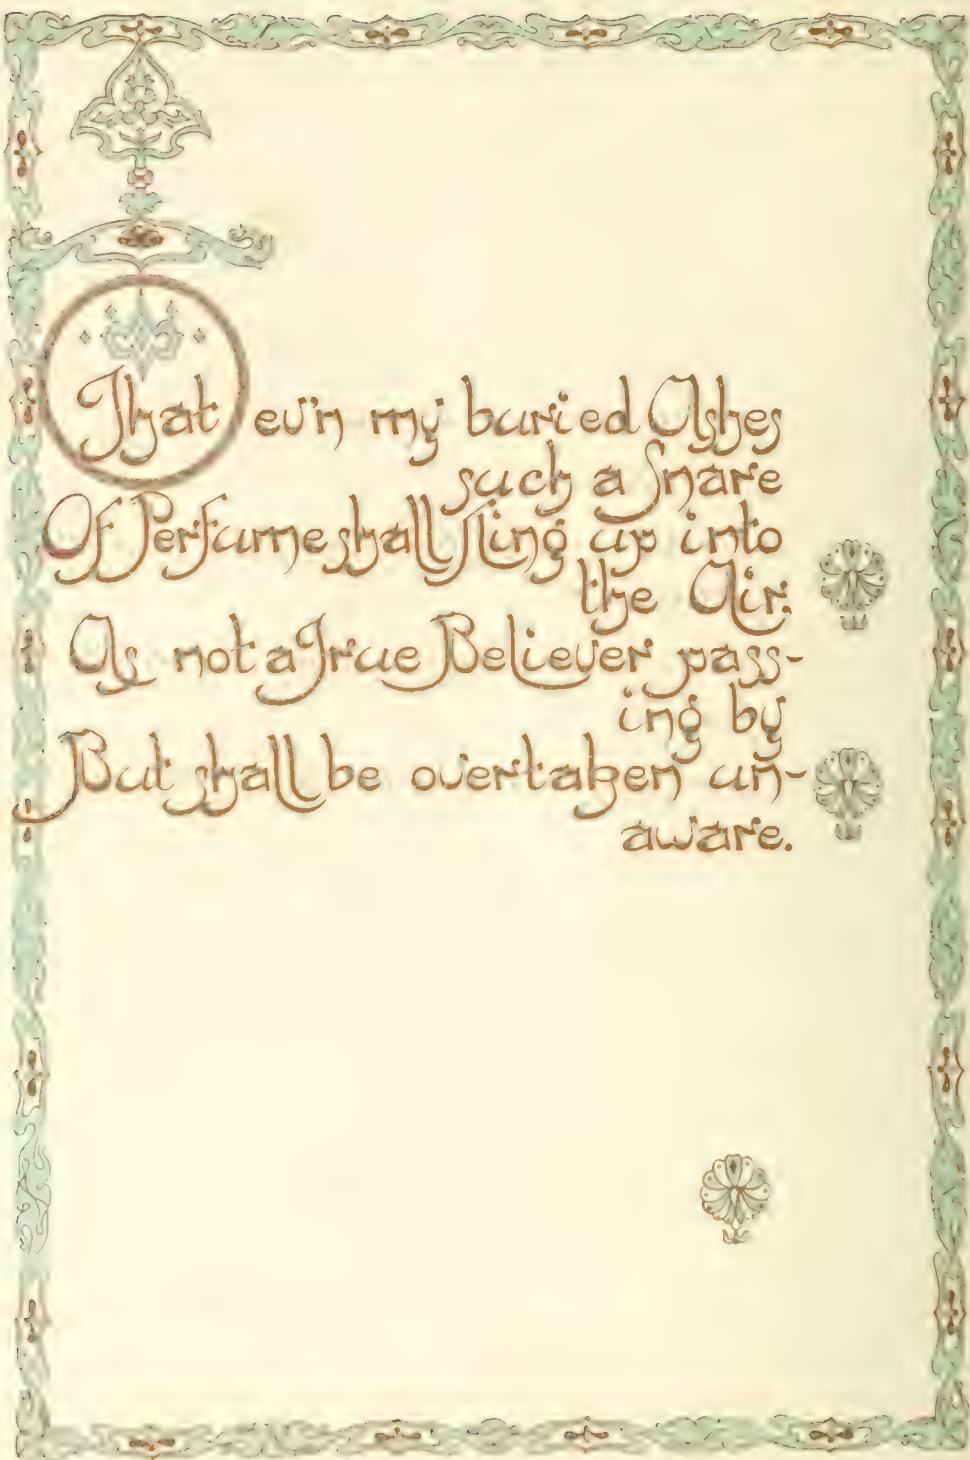 That ev'n my buried Ashes
such a Snare
Of Perfume shall fling up into
the Air,
As not a True Believer pass-
ing by
But shall be overtaken un-
aware.